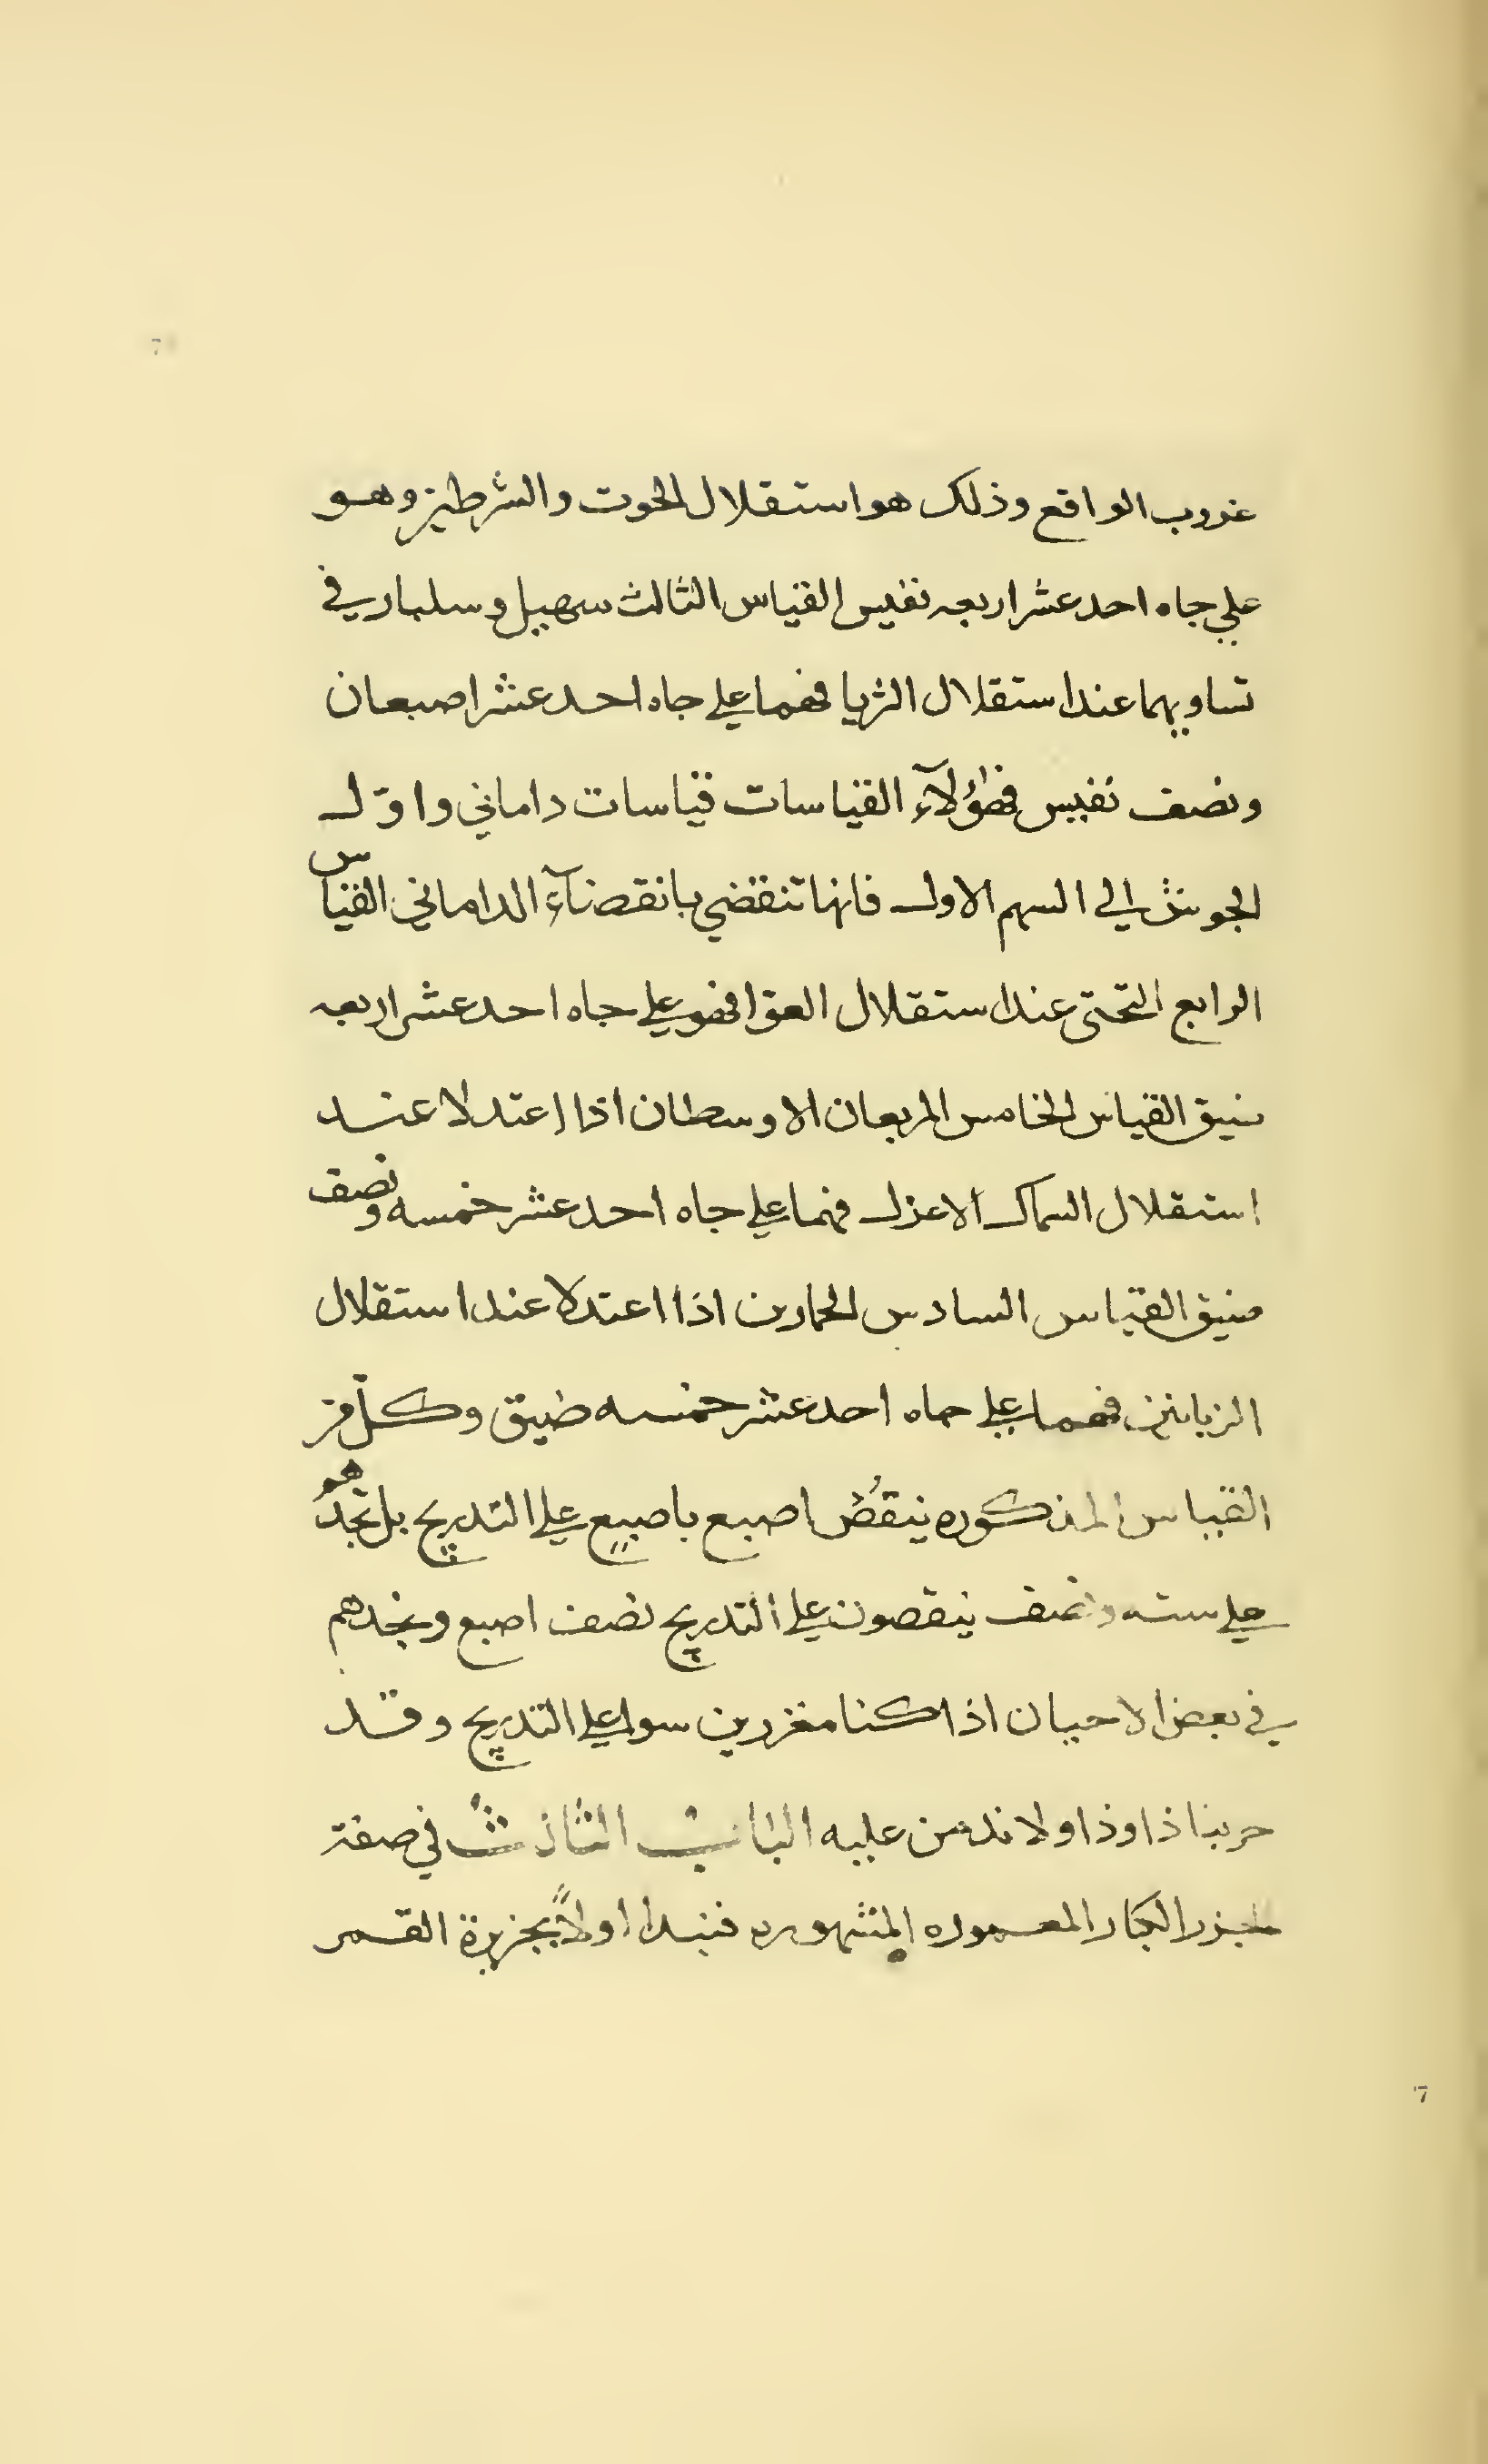 غروب الواقع وذلك هو استقلال الحوت والشرطين وهو
علي جاه احد عشر اربعه نفيس القياس الثالث سهيل وسلبار في
تساويهما عند استقلال الثريا فهما علي جاه احد عشر اصبعان
ونصف نفيس فهؤلآء القياسات قياسات داماني واوّل
الجوش الي السهم الاول فانها تنقضي بانقضآء الداماني القياس
الرابع التحتى عند استقلال العوّا فهو علي جاه احد عشر اربعه
ضيق القياس الخامس المربعان الاوسطان اذا اعتدلا عند
استقلال السماك الاعزل فهما علي جاه احد عشر خمسه ونصف
ضيق القياس السادس الحمارين اذا اعتدلا عند استقلال
الزبانين فهما علي جاه احد عشر خمسه ضيق وكلّ من
القياس المذكوره ينقُصُ اصبع باصبع علي التدريج بل تجدُهو
علي سته ونصف ينقصون علي التدريج نصف اصبع وتجدهم
في بعض الاحيان اذا كنا مغزرين سوا علي التدريج وقد
جربنا ذا وذا ولا ندمن عليه الباب الثالث في صفة
الجزر الكبار المعموره المشهوره فنبدا اولاً بجزيرة القمر
7
7